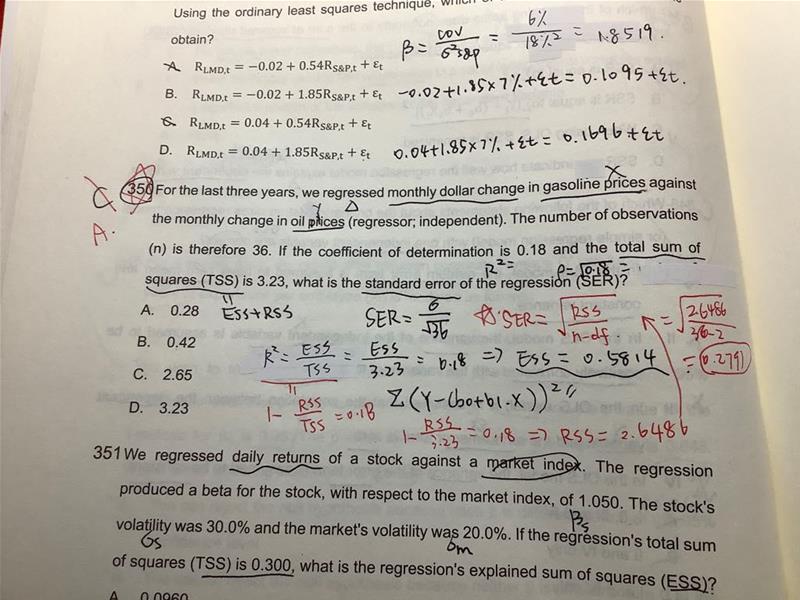 Using the ordinary least squares technique, which
obtain?
β = cov / σ²s&p = 6% / 18%² = 1.8519.
A. R_LMD,t = −0.02 + 0.54R_S&P,t + ε_t
B. R_LMD,t = −0.02 + 1.85R_S&P,t + ε_t
-0.02+1.85×7%+εt = 0.1095+εt.
C. R_LMD,t = 0.04 + 0.54R_S&P,t + ε_t
D. R_LMD,t = 0.04 + 1.85R_S&P,t + ε_t
0.04+1.85×7%+εt = 0.1696+εt
C
A.
350 For the last three years, we regressed monthly dollar change in gasoline prices against
the monthly change in oil prices (regressor; independent). The number of observations
(n) is therefore 36. If the coefficient of determination is 0.18 and the total sum of
R²= ρ=√0.18 =
squares (TSS) is 3.23, what is the standard error of the regression (SER)?
A. 0.28
ESS+RSS
SER = σ / √36
SER = √(RSS / n-df.) = √(2.6486 / 36-2) = 0.2791
B. 0.42
R² = ESS / TSS = ESS / 3.23 = 0.18 ⇒ ESS = 0.5814
C. 2.65
1 - RSS / TSS = 0.18
Σ(Y-(b0+b1·X))²
D. 3.23
1 - RSS / 3.23 = 0.18 ⇒ RSS = 2.6486
351 We regressed daily returns of a stock against a market index. The regression
produced a beta for the stock, with respect to the market index, of 1.050. The stock's
βs
volatility was 30.0% and the market's volatility was 20.0%. If the regression's total sum
σs σm
of squares (TSS) is 0.300, what is the regression's explained sum of squares (ESS)?
A. 0.0960